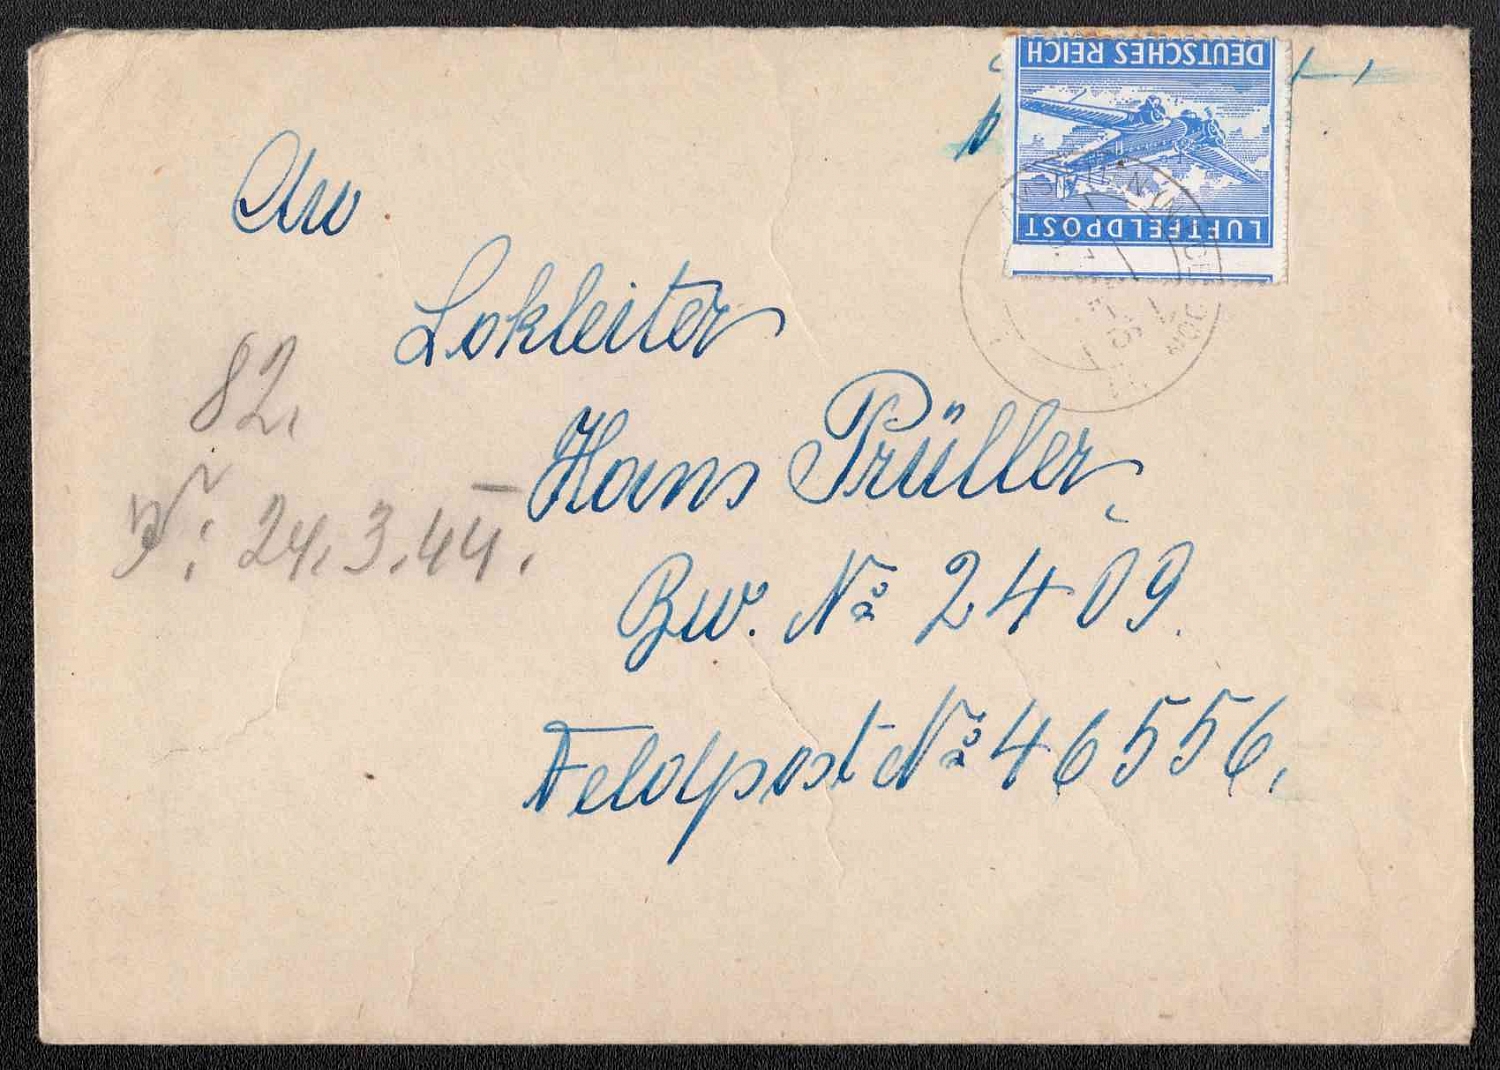 DEUTSCHES REICH
LUFTFELDPOST
An
Lokleiter
Hans Prüller,
82.
24.3.44.
Bw. No 2409.
Feldpost No 46556.